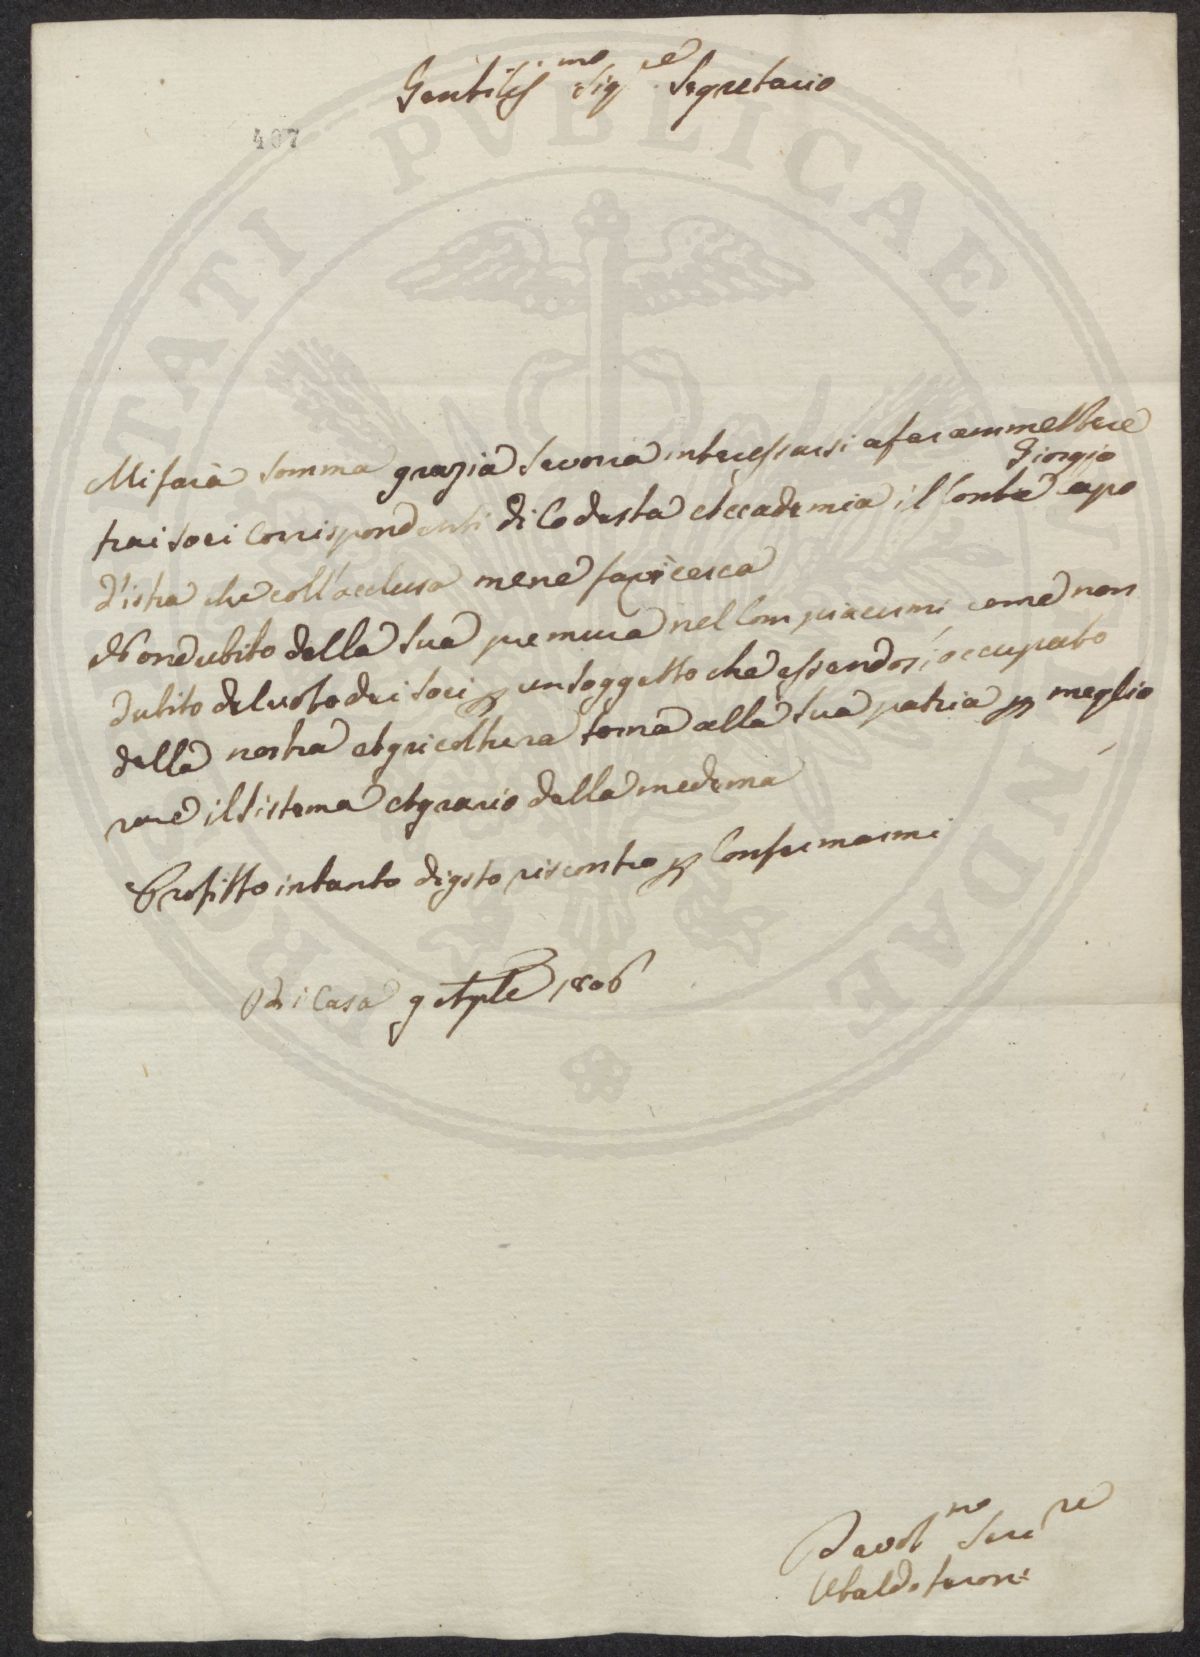 Gentiliss.mo Sig.re Segretario
407
PROSPERITATI PVBLICAE AVGENDAE
Mi farà somma grazia se vorrà interessarsi a far ammettere
Giorgio
trai soci Corrispondenti di Codesta Accademia il Conte Capo
d'istria che coll'acclusa me ne fa ricerca
Non dubito della sua premura nel Compiacermi come non
dubito del voto dei soci p un soggetto che essendosi occupato
della nostra Agricoltura torna alla sua patria p meglio
rare il sistema Agrario della medema
Profitto intanto di qsto riscontro p Confermarmi
Di Casa 9 Aple 1806
Devot.mo Ser.re
Ubaldo Feroni